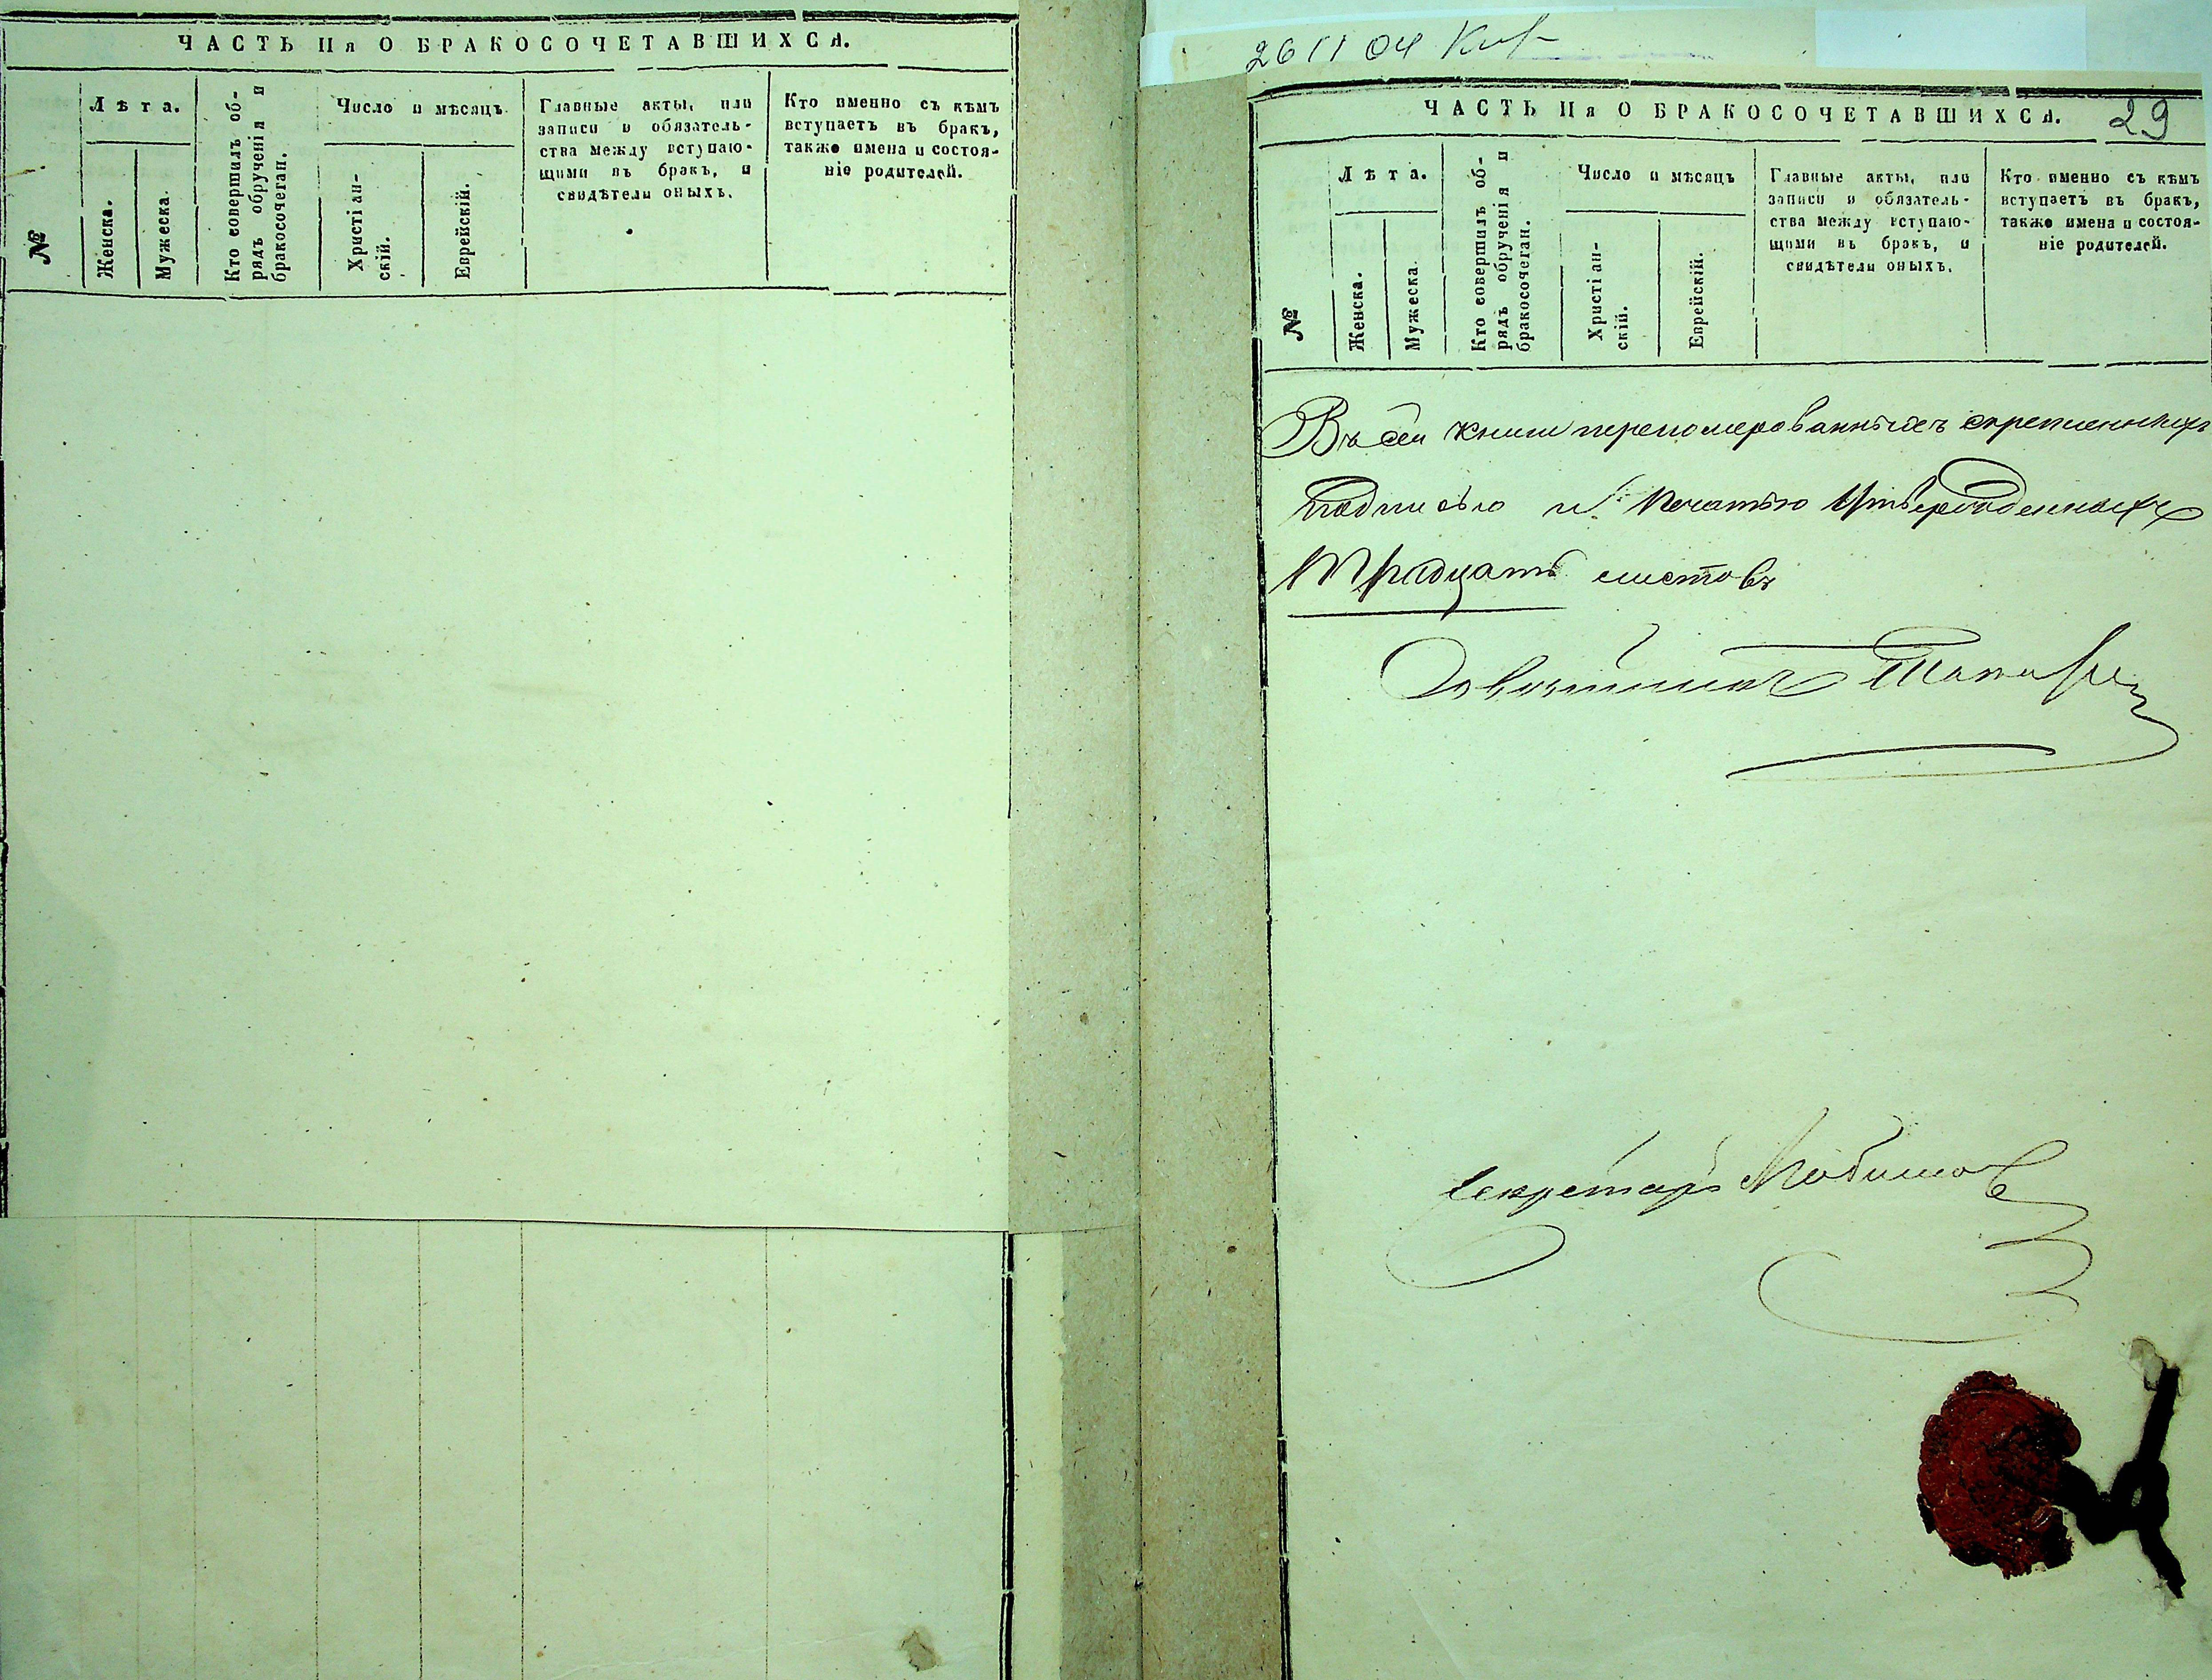 ЧАСТЬ IIя О БРАКОСОЧЕТАВШИХСЯ.
№
Лѣта.
Женска.
Мужеска.
Кто совершилъ об-
рядъ обрученія и
бракосочетан.
Число и мѣсяцъ
Христіан-
скій.
Еврейскій.
Главные акты, или
записи и обязатель-
ства между вступаю-
щими въ бракъ, и
свидѣтели оныхъ.
Кто именно съ кѣмъ
вступаетъ въ бракъ,
также имена и состоя-
ніе родителей.
26 11 04
ЧАСТЬ IIя О БРАКОСОЧЕТАВШИХСЯ.
29
№
Лѣта.
Женска.
Мужеска.
Кто совершилъ об-
рядъ обрученія и
бракосочетан.
Число и мѣсяцъ
Христіан-
скій.
Еврейскій.
Главные акты, или
записи и обязатель-
ства между вступаю-
щими въ бракъ, и
свидѣтели оныхъ.
Кто именно съ кѣмъ
вступаетъ въ бракъ,
также имена и состоя-
ніе родителей.
Въ сей книги перепомерованныхъ скрепленныхъ
подписью и печатью утвержденныхъ
тридцать листовъ
Секретарь